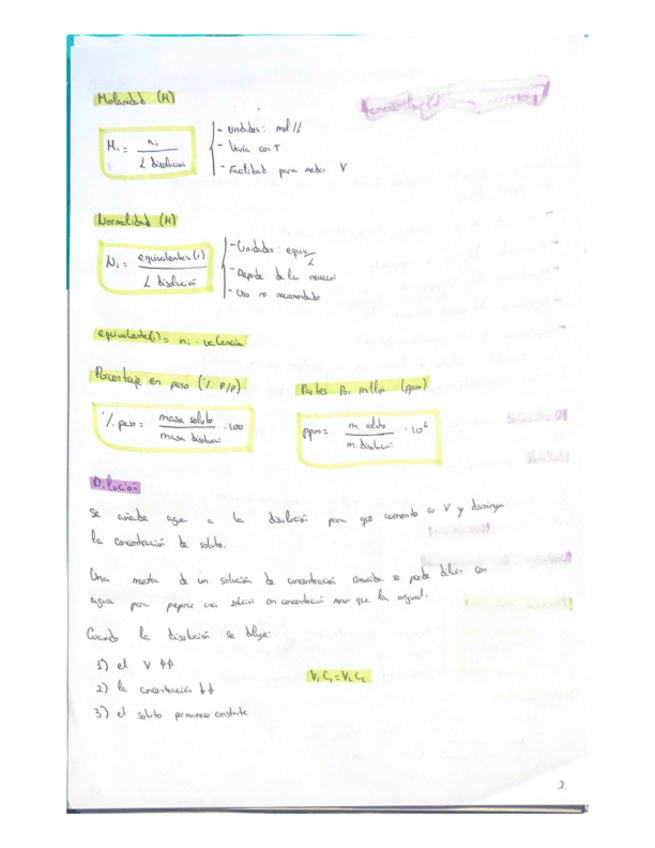 Molaridad (M)
Mi = ni / L disolución
- Unidades: mol/L
- Varía con T
- Facilidad para medir V
Normalidad (N)
Ni = equivalentes (i) / L disolución
- Unidades: equiv/L
- Depende de la reacción
- Uso no recomendado
equivalente(i) = ni · valencia
Porcentaje en peso (% P/P)
% peso = masa soluto / masa disolución · 100
Partes por millon (ppm)
ppm = m. soluto / m. disolución · 10⁶
Dilución
Se añade agua a la disolución para que aumente su V y disminuya
la concentración de soluto.
Una muestra de un solución de concentración conocida se puede diluir con
agua para preparar una solución con concentración menor que la original.
Cuando la disolución se diluye:
1) el V ↑↑
2) la concentración ↓↓
3) el soluto permanece constante
V₁ C₁ = V₂ C₂
2